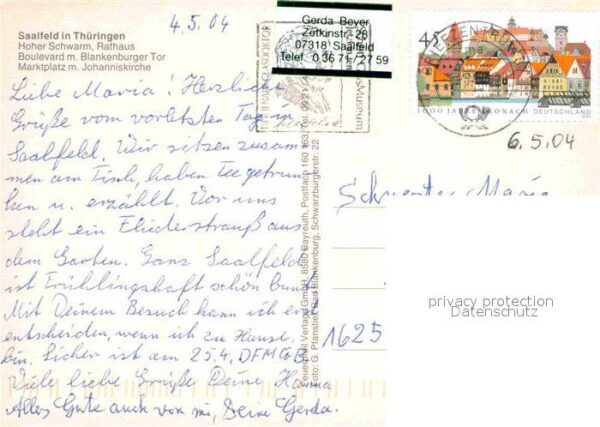 4.5.04
Saalfeld in Thüringen
Hoher Schwarm, Rathaus
Boulevard m. Blankenburger Tor
Marktplatz m. Johanniskirche
Liebe Maria! Herzliche
Grüße vom vorletzten Tag in
Saalfeld. Wir sitzen zusam
men am Tisch, haben Tee getrun
ken u. erzählt. Vor uns
steht ein Fliederstrauß aus
dem Garten. Ganz Saalfeld
ist Frühlingshaft schön bunt.
Mit Deinem Besuch kann ich erst
entscheiden, wenn ich zu Hause
bin. Sicher ist am 25.4. DFMGB
Viele liebe Grüße Deine Hanna
Alles Gute auch von mir, Deine Gerda.
Gerda Beyer
Zetkinstr. 28
07318 Saalfeld
Telef. 0 36 71 / 27 59
Museum
45
1000 JAHRE KRONACH DEUTSCHLAND
6.5.04
Schwester Maria
1625
privacy protection
Datenschutz
Verlag GmbH, 8580 Bayreuth, Postfach 160 163, Tel.
Foto: G. Pfanstiel, Bad Blankenburg, Schwarzburgerstr. 22